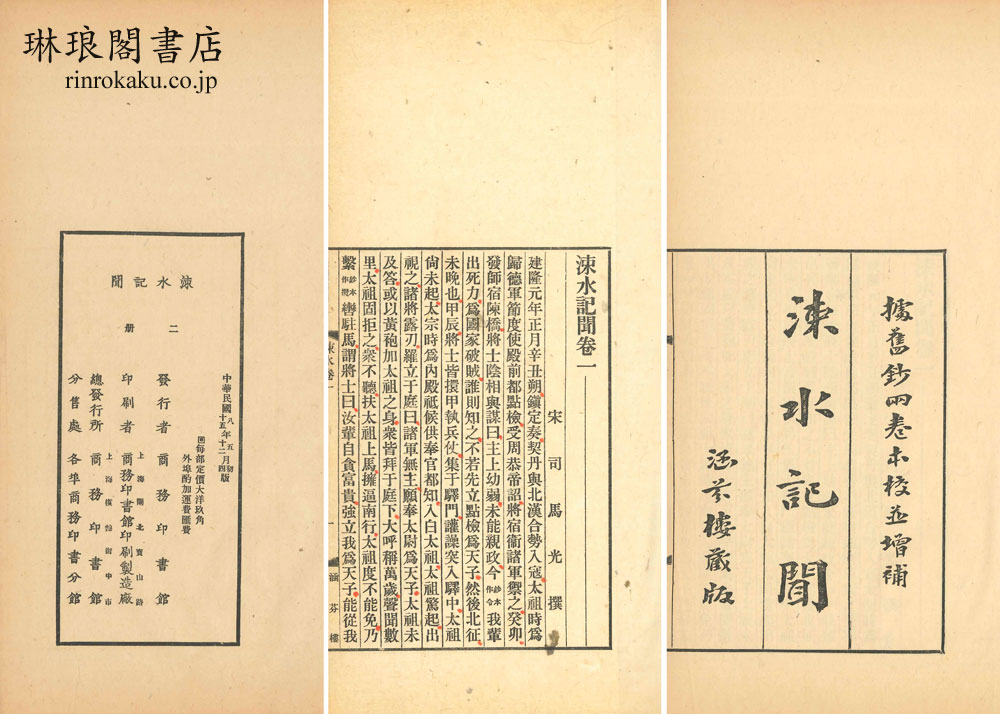 琳琅閣書店
rinrokaku.co.jp
據舊鈔四卷本校並增補
涑水記聞
涵芬樓藏版
涑水記聞卷一
宋司馬光撰
建隆元年正月辛丑朔鎮定奏契丹與北漢合勢入寇太祖時爲
歸德軍節度使殿前都點檢受周恭帝詔將宿衞諸軍禦之癸卯
發師宿陳橋將士陰相與謀曰主上幼弱未能親政今鈔本作令我輩
出死力爲國家破賊誰則知之不若先立點檢爲天子然後北征
未晚也甲辰將士皆擐甲執兵仗集于驛門讙譟突入驛中太祖
尙未起太宗時爲內殿祗候供奉官都知入白太祖太祖驚起出
視之諸將露刃羅立于庭曰諸軍無主願奉太尉爲天子太祖未
及答或以黃袍加太祖之身衆皆拜于庭下大呼稱萬歲聲聞數
里太祖固拒之衆不聽扶太祖上馬擁逼南行太祖度不能免乃
繫鈔本作攬轡駐馬謂將士曰汝輩自貪富貴強立我爲天子能從我
涑水卷一 一 涵芬樓
涑水記聞
二册
中華民國八十五年五十二月初四版
每部定價大洋玖角
外埠酌加運費匯費
發行者 商務印書館
上海閘北寶山路
印刷者 商務印書館印刷製造廠
上海棋盤街中市
總發行所 商務印書館
分售處 各埠商務印書分館